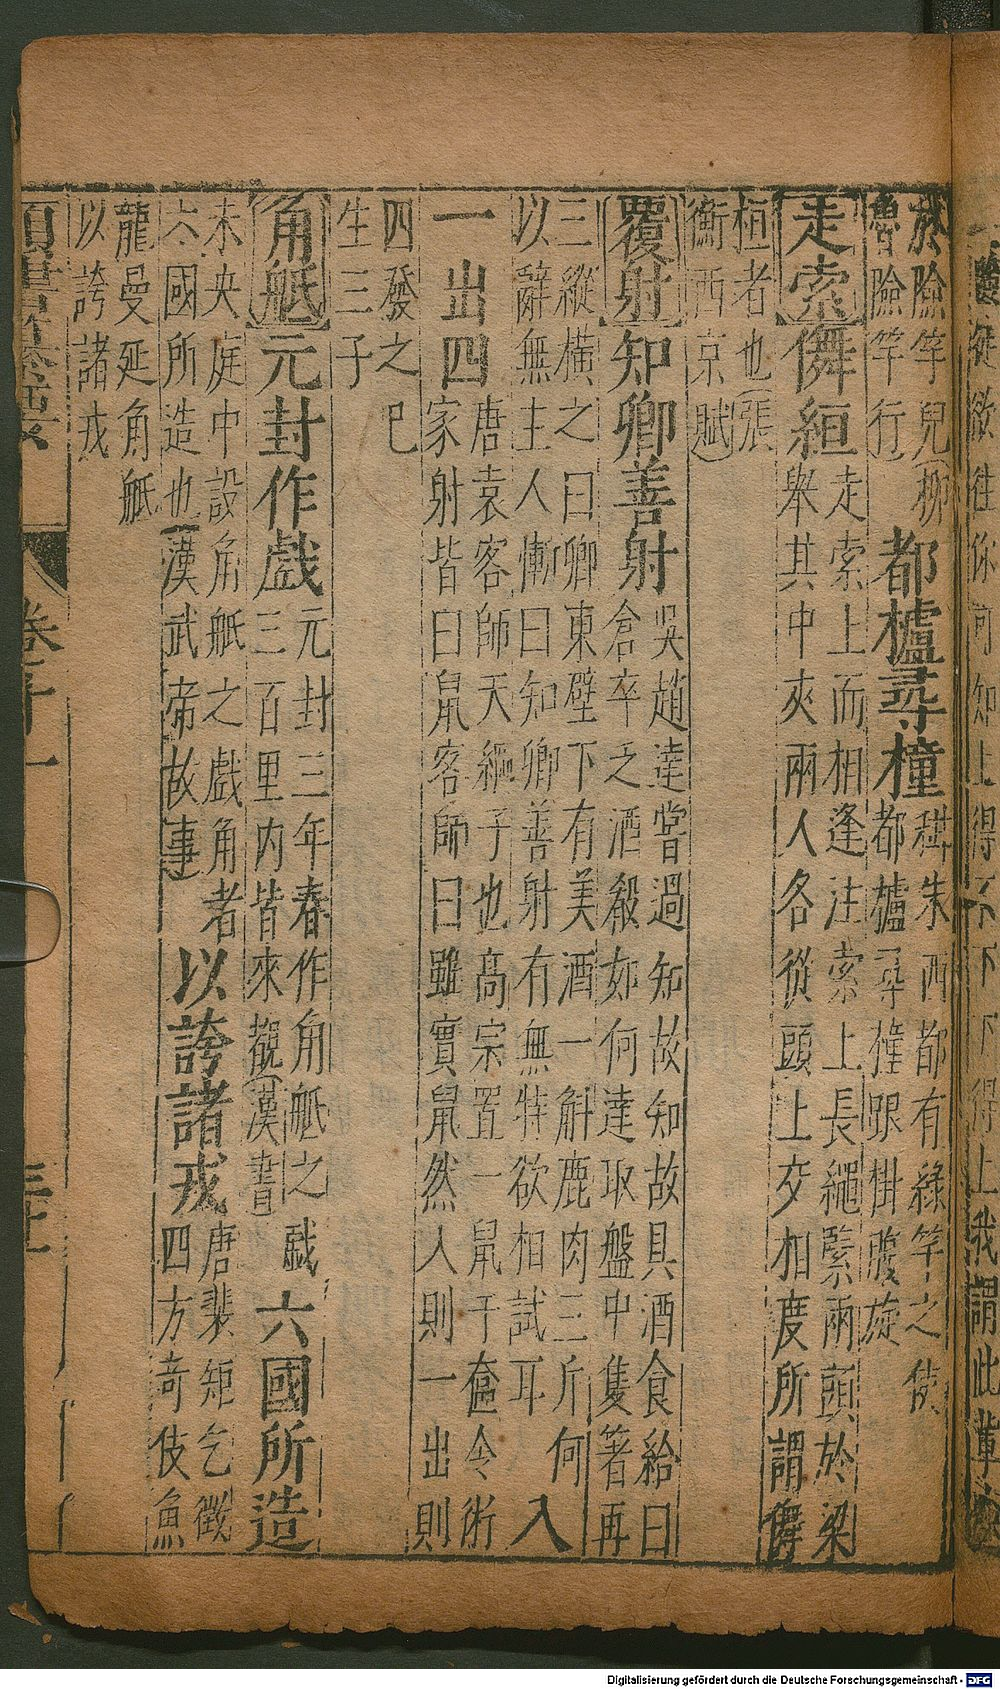 於險竿兒(柳
曾險竿行
都櫨尋橦
秣朱西都有緣竿之使
都櫨尋橦跟掛腹旋
走索儛絙
走索上而相逢注索上長繩繫兩頭於梁
舉其中夾兩人各從頭上交相度所謂儛
桓者也(張
衡西京賦)
覆射知卿善射
吳趙達嘗過知故知故具酒食給曰
倉卒乏酒殽如何達取盤中隻箸再
三縱橫之曰卿東壁下有美酒一斛鹿肉三斤何
以辭無主人慚曰知卿善射有無特欲相試耳
入
一出四
唐袁客師天綱子也高宗置一鼠于奩令術
家射皆曰鼠客師曰雖實鼠然入則一出則
四發之
生三子
巳
角觝元封作戲
元封三年春作角觝之戲
三百里内皆來觀(漢書
六國所造
未央庭中設角觝之戲角者
六國所造也(漢武帝故事
以誇諸戎
唐裴矩乞徵
四方奇伎魚
龍曼延角觝
以誇諸戎
卷二十一
Digitalisierung gefördert durch die Deutsche Forschungsgemeinschaft - DFG